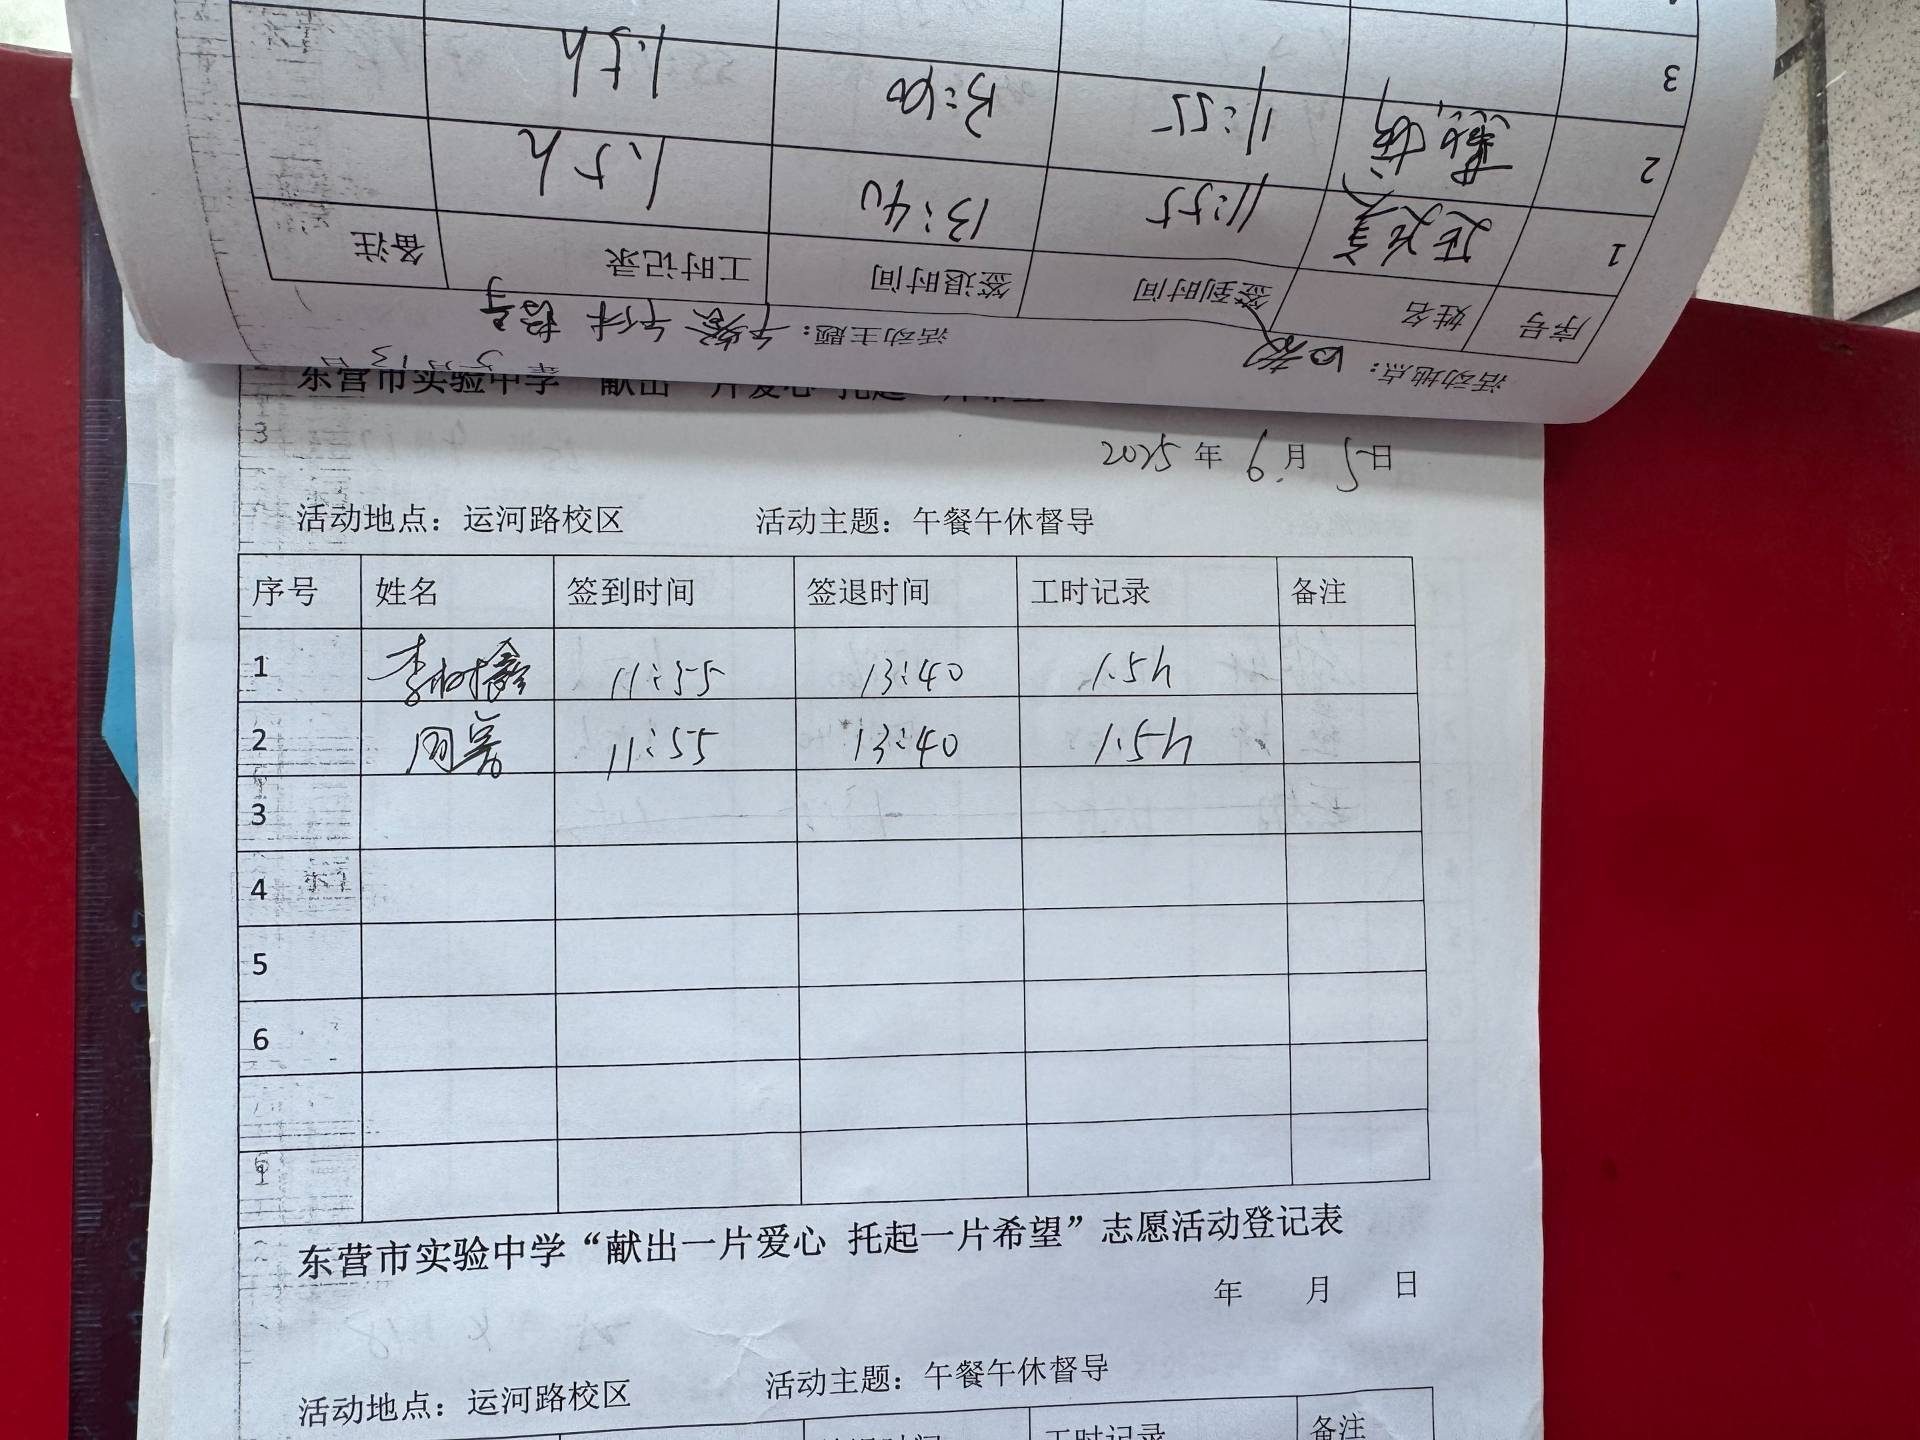 备注 工时记录 签退时间 签到时间 姓名 序号
1 11:55 13:40 1.5h
2 11:55 13:40 1.5h
3
活动地点： 活动主题：午餐午休督导
东营市实验中学
2025年6月5日
活动地点：运河路校区 活动主题：午餐午休督导
序号 姓名 签到时间 签退时间 工时记录 备注
1 李树鑫 11:55 13:40 1.5h
2 周蓉 11:55 13:40 1.5h
3
4
5
6
东营市实验中学“献出一片爱心 托起一片希望”志愿活动登记表
年 月 日
活动地点：运河路校区 活动主题：午餐午休督导
工时记录 备注